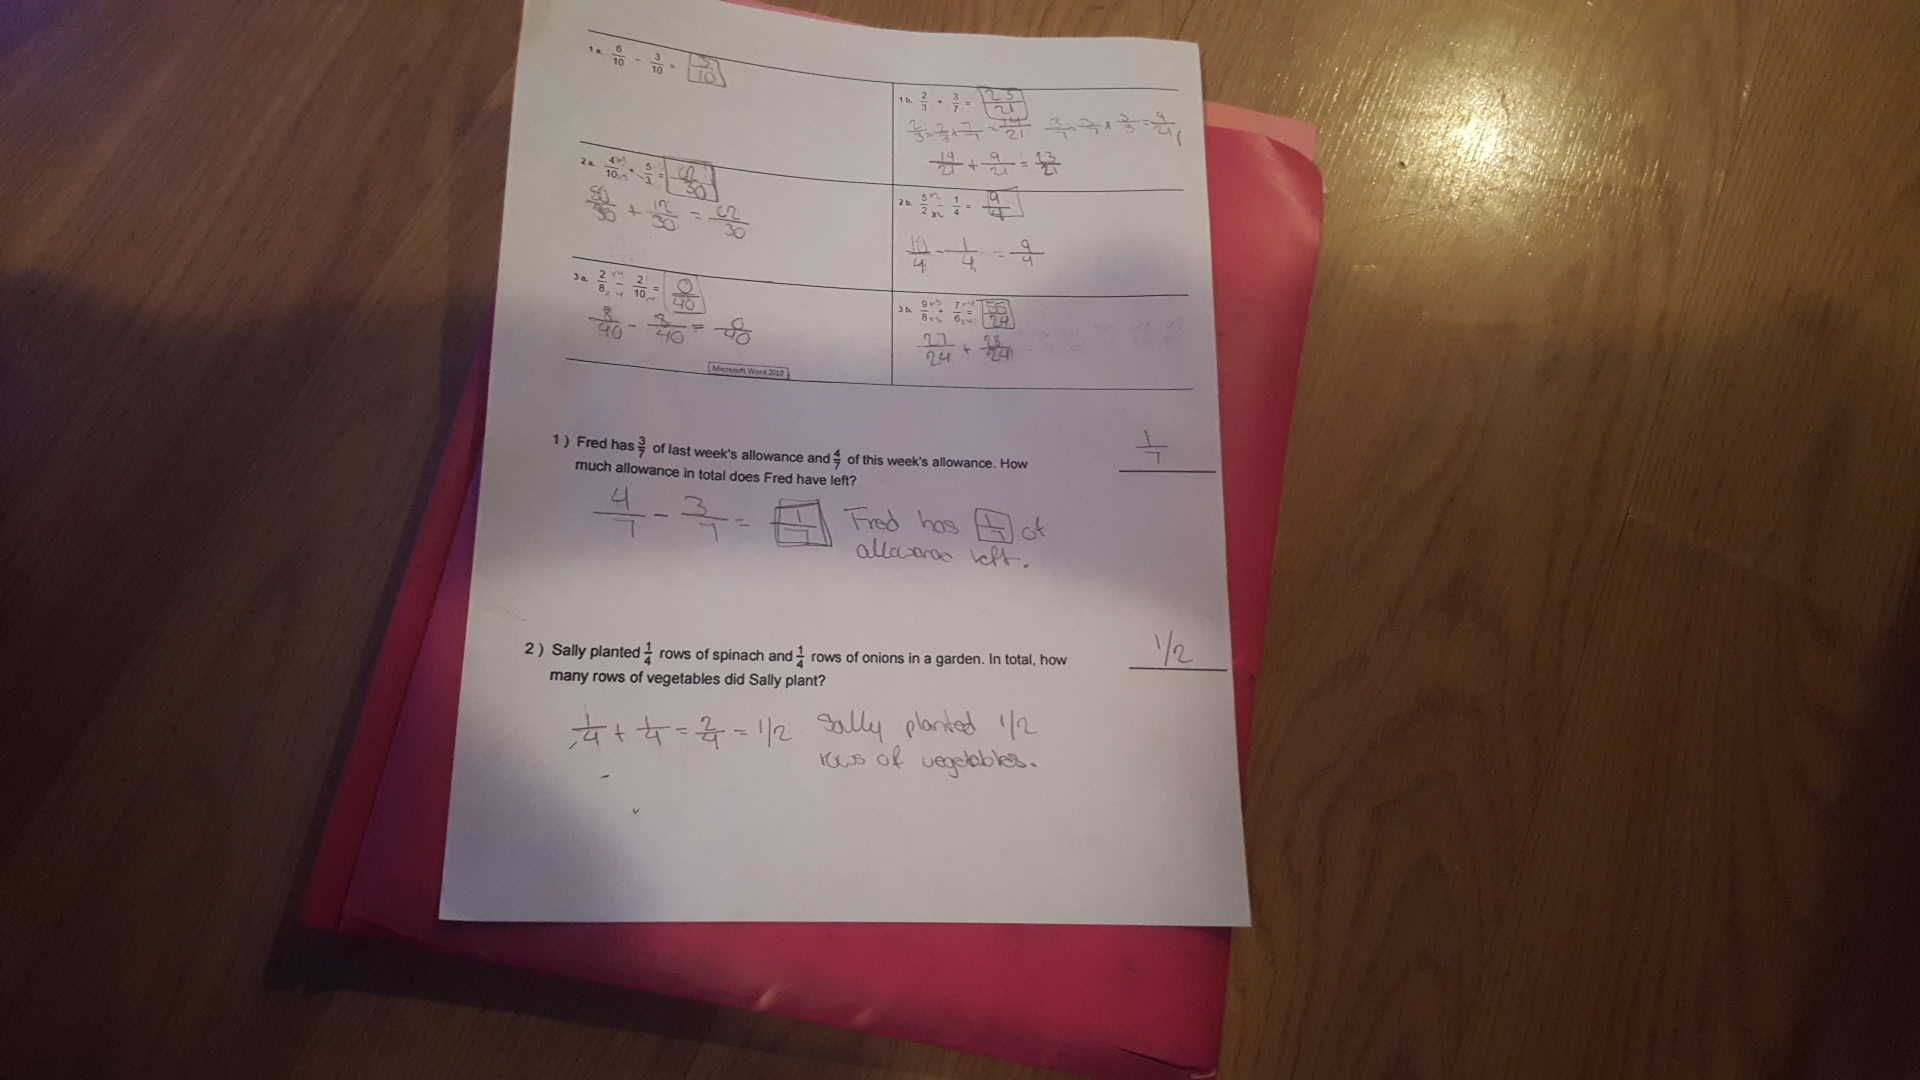 1a. 6/10 - 3/10 = 3/10
1b. 2/3 + 3/7 = 23/21
2/3 = 2/3 x 7/7 = 14/21 3/7 = 3/7 x 3/3 = 9/21
14/21 + 9/21 = 23/21
2a. 4x3/10x3 + 5/3 = 62/30
50/30 + 12/30 = 62/30
2b. 5x2/2x2 - 1/4 = 9/4
10/4 - 1/4 = 9/4
3a. 2x4/8x4 - 2/10x4 = 0/40
8/90 - 8/40 = 0/40
3b. 9x3/8x3 + 7x4/6x4 = 55/24
27/24 + 28/24
Microsoft Word 2010
1 ) Fred has 3/7 of last week's allowance and 4/7 of this week's allowance. How
much allowance in total does Fred have left?
1/7
4/7 - 3/7 = 1/7 Fred has 1/7 of
allowance left.
2 ) Sally planted 1/4 rows of spinach and 1/4 rows of onions in a garden. In total, how
many rows of vegetables did Sally plant?
1/2
1/4 + 1/4 = 2/4 = 1/2 Sally planted 1/2
rows of vegetables.